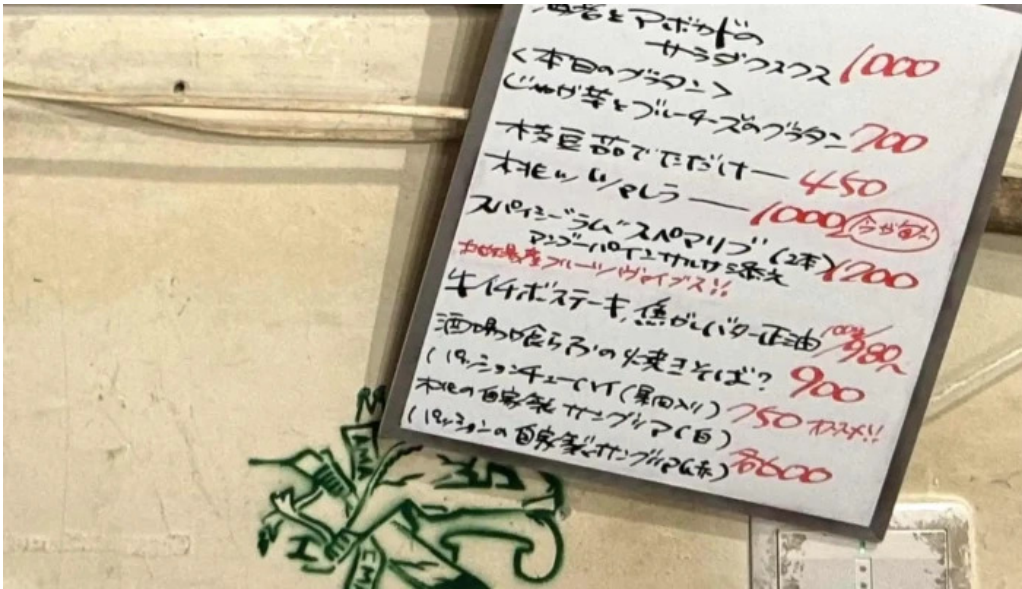 海老とアボカドの
サラダクスクス 1000
<本日のグラタン>
じゃが芋とブルーチーズのグラタン 700
枝豆茹でただけ ー 450
木桃 マシュラ ー 1000 今が旬
スパイシーラムスペアリブ (2本) 1200
マンゴーパインサルサ添え
フルーツヴァイブス!!
牛イチボステーキ、焦がしバター正油 100g/980〜
酒場喰らふの焼きそば? 900
(パッションチューハイ(果肉入り) 750 オススメ!!
木桃の自家製サングリア(白)
(パッションの自家製サングリア(赤) 各600
AMA